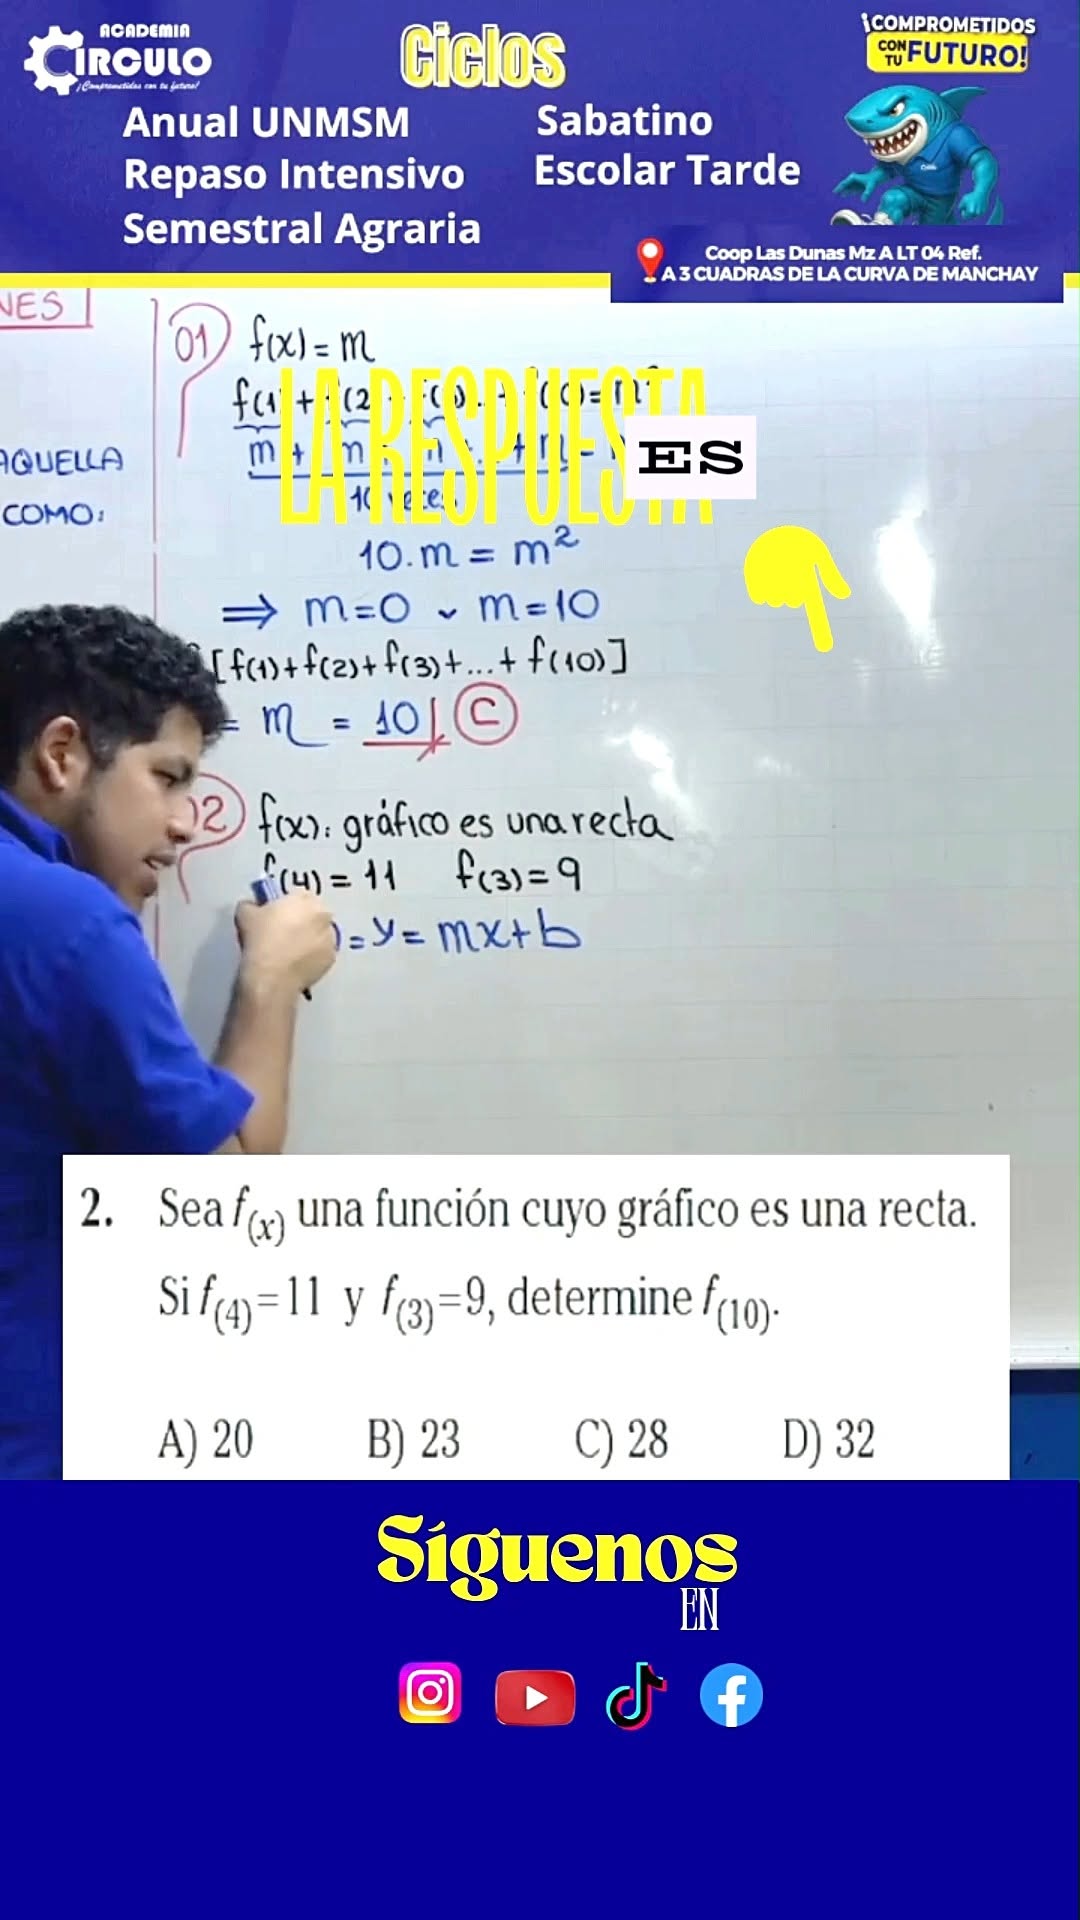 ACADEMIA
CIRCULO
¡Comprometidos con tu futuro!
Ciclos
¡COMPROMETIDOS
CON TU FUTURO!
Anual UNMSM
Sabatino
Repaso Intensivo
Escolar Tarde
Semestral Agraria
Coop Las Dunas Mz A LT 04 Ref.
A 3 CUADRAS DE LA CURVA DE MANCHAY
NES
AQUELLA
COMO:
01 f(x) = m
LA RESPUESTA
ES
10.m = m²
⇒ m=0 ∨ m=10
[f(1)+f(2)+f(3)+...+f(10)]
= m = 10 C
02 f(x): gráfico es una recta
f(4) = 11 f(3) = 9
= y = mx+b
2. Sea f(x) una función cuyo gráfico es una recta.
Si f(4)=11 y f(3)=9, determine f(10).
A) 20 B) 23 C) 28 D) 32
Síguenos
EN